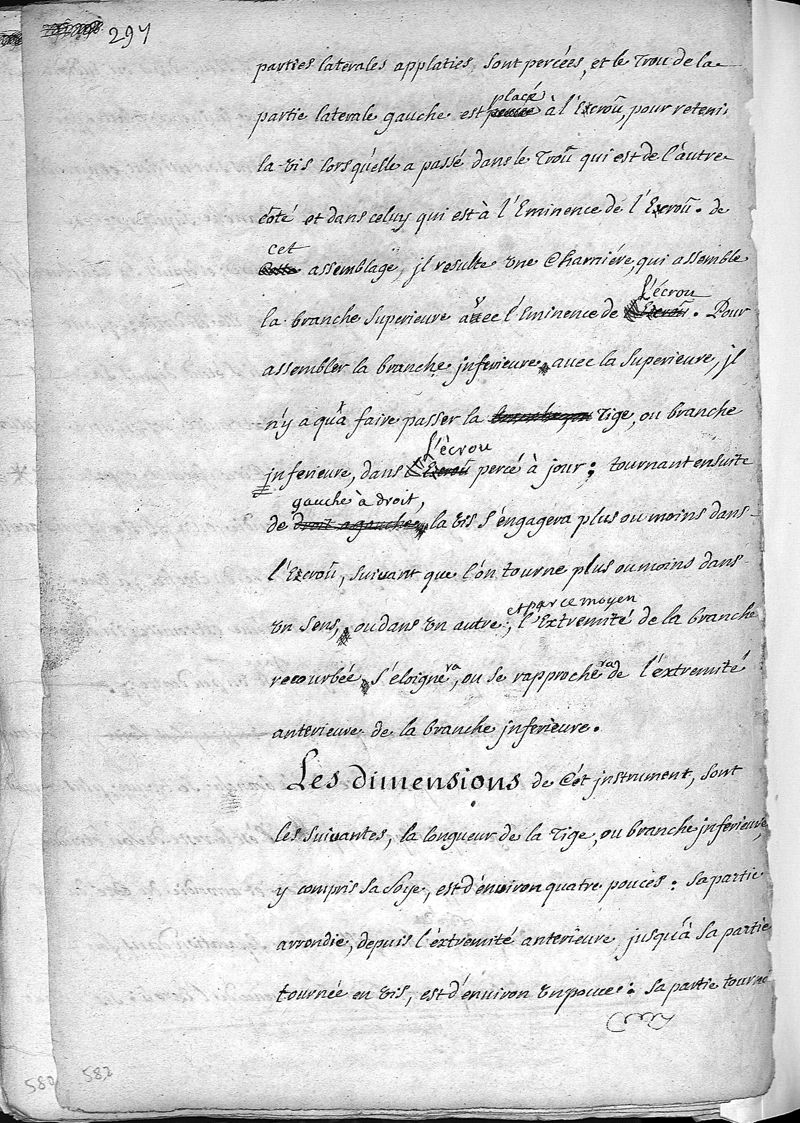 297
parties laterales applaties, sont percées, et le Trou de la
placé
partie laterale gauche est percée à l'Ecroû, pour retenir
la vis lorsqu'elle a passé dans le Troû qui est de l'autre
côté et dans celuy qui est à l'Eminence de l'Ecroû. de
cet
Cette assemblage, jl resulte une Charniére, qui assemble
L'écrou
la branche Superieure avec l'Eminence de l'Ecroû. Pour
assembler la branche jnferieure, avec la Superieure, jl
n'y a qu'à faire passer la Tige, ou branche
L'écrou
jnferieure, dans l'Ecroû percé à jour; tournant ensuite
gauche à droit,
de droit a gauche, la vis s'engagera plus ou moins dans
l'Ecroû, suivant que l'on tourne plus ou moins dans
et par ce moyen
un sens, ou dans un autre, l'Extremité de la branche
recourbée s'éloignera, ou se rapprochera de l'éxtremité
anterieure de la branche jnferieure.
Les dimensions de Cét jnstrument, sont
les suivantes, la longueur de la Tige, ou branche jnferieure,
y compris sa Soye, est d'environ quatre pouces: sa partie
arrondie, depuis l'éxtremité anterieure, jusqu'à sa partie
tournée en vis, est d'environ un pouce: sa partie tourné
582
582